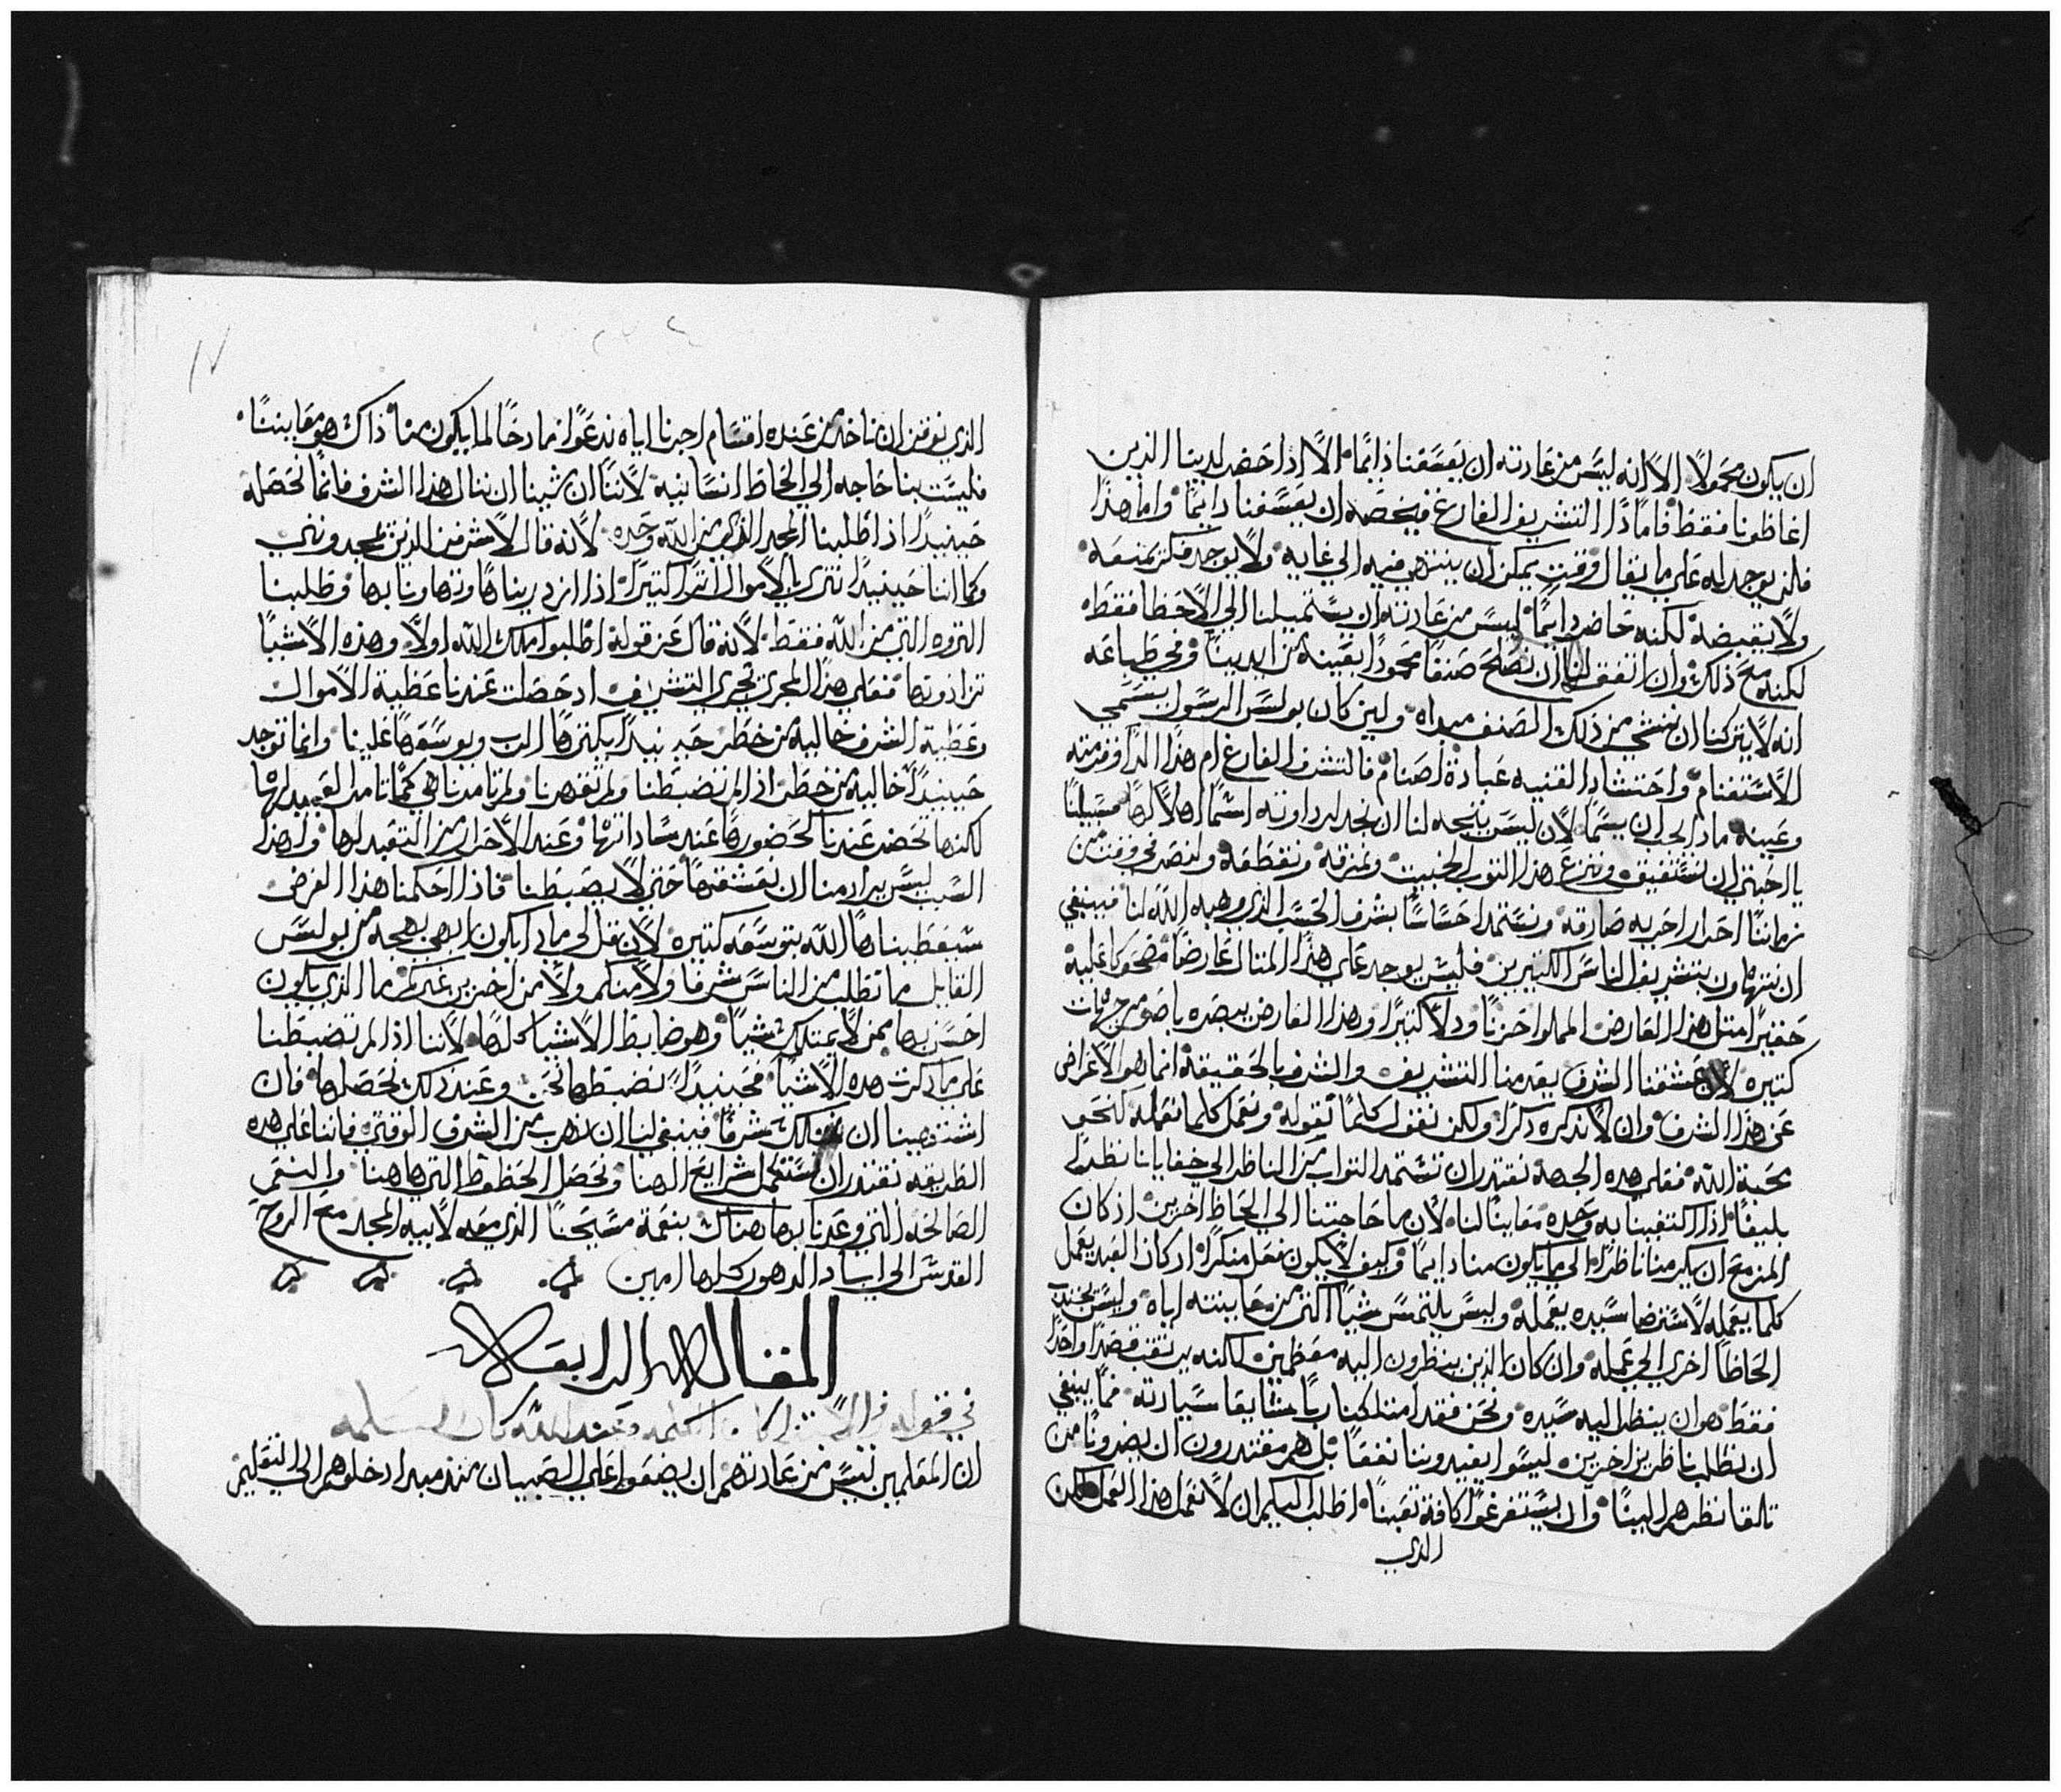 ان يكون محمولاً الا انه ليس من عادته ان يعسفنا دايمًا الا اذا حضر لدينا الذين
اغاظونا فقط فاما ذا التشريف الفارغ فيخصه ان يعسفنا دايمًا واما هذا
فلن يوجد له على ما يقال وقت يمكن ان ينتهي فيه الي غايه ولا يوجد فكر يمنعه
ولا يقبضه لكنه حاضر دايمًا ليس من عادته ان يستميلنا الي الاخطا فقط
لكنه مع ذلك وان اتفق لنا ان نصلح صنفا محمودًا يغبنه من ايدينا وفي طباعه
انه لا يتركنا ان ننشي من ذلك الصنف مبداه ولين كان بولس الرسول يسمي
الاستغنام واحتشاد القنيه عبادة اصنام فالتشرف الفارغ ام هذا الدا وقرمته
وعينه ماذا يجب ان يسما لان ليس يتجه لنا ان نجد لرداوته اسمًا اهلاً لها سبيلنا
يا احبتي ان نستفيق وننزع هذا الثوب الخبيث ونمزقه ونقطعه ولنصر في وقت من
زماننا احرار احريه صادقه ونستمد احساسًا بشرف الحسب الذي وهبه الله لنا فينبغي
ان نتهاون بتشريف الناس الكثيرين فليس يوجد علي هذا المثال عارضًا مضحوكا عليه
حقيرًا مثل هذا العارض المملوا حزنًا ودلاً كثيرًا وهذا العارض يبصره باصوميرجهات
كثيره لان عشقنا الشرف يعدمنا التشريف والشرف بالحقيقة انما هو الاعراض
عن هذا الشرف وان لا نذكره ذكرًا ولكن نقول كلما نقوله ونعمل كلما نعمله لنحو
محبة الله فعلي هذه الجهة نقتدر ان نستمد الثواب من الناظر الي خفايانا نظرًا
بليغًا اذا اكتفينا به وحده معاينًا لنا لان ما حاجتنا الي الحاظ اخرين اذ كان
المزمع ان يكرمنا ناظرًا الي ما يكون منا دايمًا وكيف لا يكون فعل منكرًا اذ كان العبد يعمل
كلما يعمله لاسترضا سيده يعمله وليس يلتمس شيًا اكثر من معاينته اياه وليس يجتذب
الحاظًا اخري الي عمله وان كان الذين ينظرون اليه معظمين لكنه يرتقب قصدًا واحدًا
فقط هو ان ينظر اليه سيده ونحن فقد امتلكنا ربًا متساميا سيادته فما ينبغي
ان نطلب ناظرين اخرين ليسوا يفيدوننا نفعًا بل هم مقتدرون ان يضرونا من
تلقا نظرهم الينا وان يستفرغوا كافة تعبنا اطلب اليكم ان لا نعمل هذا العمل لكن
الذي
الذي نوقن ان ناخذ من عنده اقسام اجرنا اياه ندعوا مادحًا لما يكون منا ذاك هو معايننا
فليست بنا حاجه الي الحاظ انسانيه لاننا ان شينا ان ننال هذا الشرف فانما نحصله
حينيدًا اذا طلبنا المجد الذي من الله وحده لانه قال لاشرفن الذين يمجدونني
وكما اننا حينيدًا نثري بالاموال اثرا كثيرًا اذا ازدريناها وتهاونا بها وطلبنا
الثروه التي من الله فقط لانه قال عز قوله اطلبوا ملك الله اولاً وهذه الاشيا
تزادونها فعلي هذا المجري يجري التشريف اد حصلت عندنا عطية الاموال
وعطية الشرف خاليه من خطر حينيدًا يكثرها الرب ويوسعها علينا وانما توجد
حينيدًا خاليه من خطر اذا لم تضبطنا ولم تقهرنا ولم تامرنا هي كما تامر العبيد لها
لكنها تحضر عندنا كحضورها عند ساداتها وعند الاحرار من التعبد لها ولهذا
السبب ليس يراد منا ان نعشقها حتي لا يضبطنا فاذا احكمنا هذا الغرض
سيعطيناها الله بتوسعه كثيره لان قل لي ماذا يكون ابهي بهجه من بولس
القايل ما نطلب من الناس شرفا ولا منكم ولا من اخرين غيركم ما الذي يكون
احسن بها ممن لا يمتلك شيًا وهو ضابط الاشيا كلها لاننا اذا لم تضبطنا
علي ما ذكرت هذه الاشيا فحينيدًا نضبطها نحن وعند ذلك نحصلها فان
اشتهينا ان نمتلك شرفًا فينبغي لنا ان نهرب من الشرف الوقتي فاننا علي هذه
الطريقه نقتدر ان نستكمل شرايع الهنا ونحصل الحظوظ التي هاهنا والنعم
الصالحه التي وعدنا بها هناك بنعمة مسيحنا الذي معه لابيه المجد مع الروح
القدس الي اباد الدهور كلها امين
المقاله الرابعه
في قوله في الابتدا كان الكلمه وعند الله كان الكلمه
ان المعلمين ليس من عادتهم ان يضعوا علي الصبيان منذ مبدا دخلوهم الي التعليم